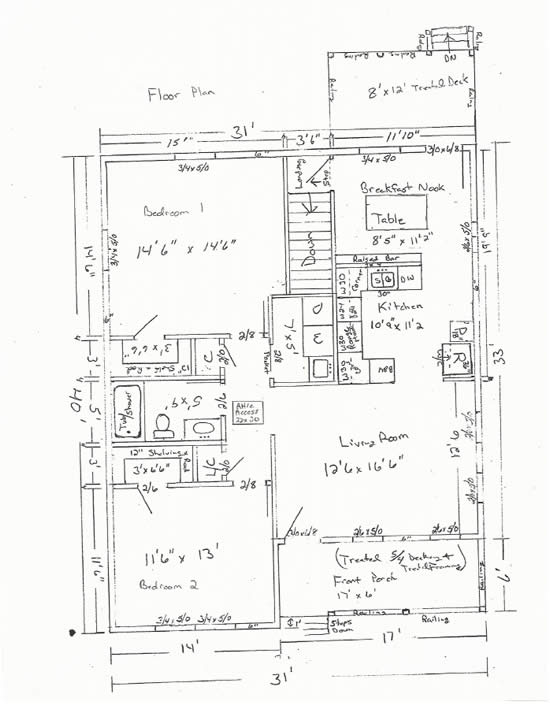 Railing
Railing Railing
DN
Railing
8' x 12' Treated Deck
Floor Plan
31'
15'
3'6"
11'10"
6"
3/4 x 5/0
3/4 x 5/0
3/0 x 6/8
Landing
Breakfast Nook
Table
8'5" x 11'2"
Bedroom 1
14'6" x 14'6"
14'6"
3/4 x 5/0
Down
Raised Bar
S
DW
30"
Kitchen
10'9" x 11'2
D
W
7' x 5'
R
33'
2/8
2/8
Pocket
4
3'
3' x 6'6"
C
2/0
4
40'
5'
Tub/Shower
5' x 9'
2/6
Attic
Access
22 x 30
Living Room
12'6 x 16'6"
12'6"
12" Shelving &
Rod
3' x 6'6"
L/C
2/0
3'
4
2/6
2/8
11'6"
11'6" x 13'
Bedroom 2
3/0 x 6/8
2/6 x 5/0
6"
2/6 x 5/0
(Treated 5/4 Decking &
Treated Framing)
Front Porch
17' x 6'
Railing
7'
3/4 x 5/0
3/4 x 5/0
6"
1'
Steps
Down
Railing
Railing
14'
17'
31'